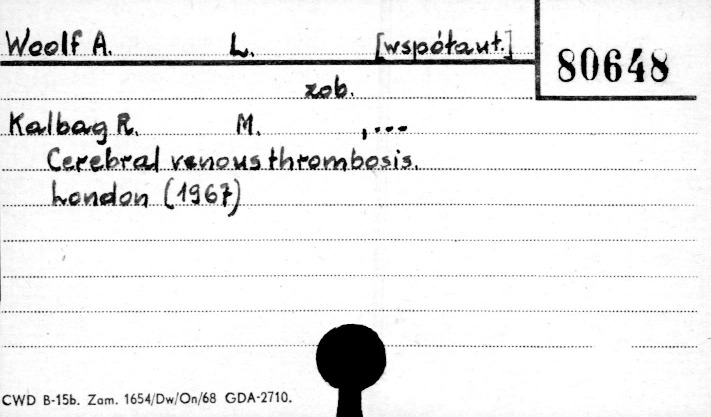 Woolf A. L. [współaut.]
80648
zob.
Kalbag R. M. ,...
Cerebral venous thrombosis.
London (1967)
CWD B-15b. Zam. 1654/Dw/On/68 GDA-2710.